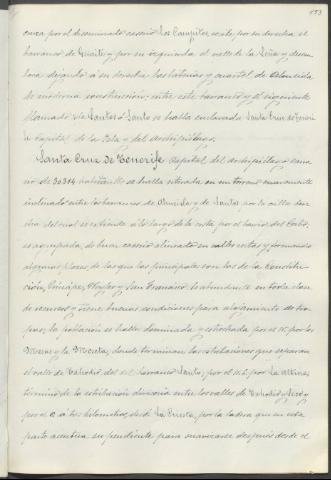 153
cruza por el diseminado caserio Los Campitos recibe por su derecha el
barranco de y por su izquierda el valle de la Leña y desem-
boca dejando á su derecha las baterias y cuartel de Almeida
de moderna construccion; entre este barranco y el siguiente
llamado via Santos ó Santo se halla enclavada Santa Cruz de Tenerife
Capital de la Isla y del Archipiélago.
Santa Cruz de Tenerife capital del archipiélago
de 30314 habitantes se halla situada en un terreno suavemente
inclinado entre los barrancos de Almeida y de Santos por la orilla dere-
cha del cual se extiende á lo largo de la costa por el barrio del Cabo,
es agrupada, de buen caserio alineado en calles rectas y formando
algunas plazas de las que las principales son las de la Constitu-
ción, Principe, Weyler y San Francisco: es abundante en toda clase
de recursos y reune buenas condiciones para alojamiento de tro-
pas; la poblacion se halla dominada y estrechada por el N. por los
y la donde terminan las estribaciones que separan
el valle de Tahodio del del barranco Santos, por el N.E. por La Altura
término de la estribacion divisoria entre los valles de Tahodio y
y por el O. á tres kilometros, desde La Cuesta, por la ladera que en esta
parte acentua su pendiente para suavizarse despues desde el